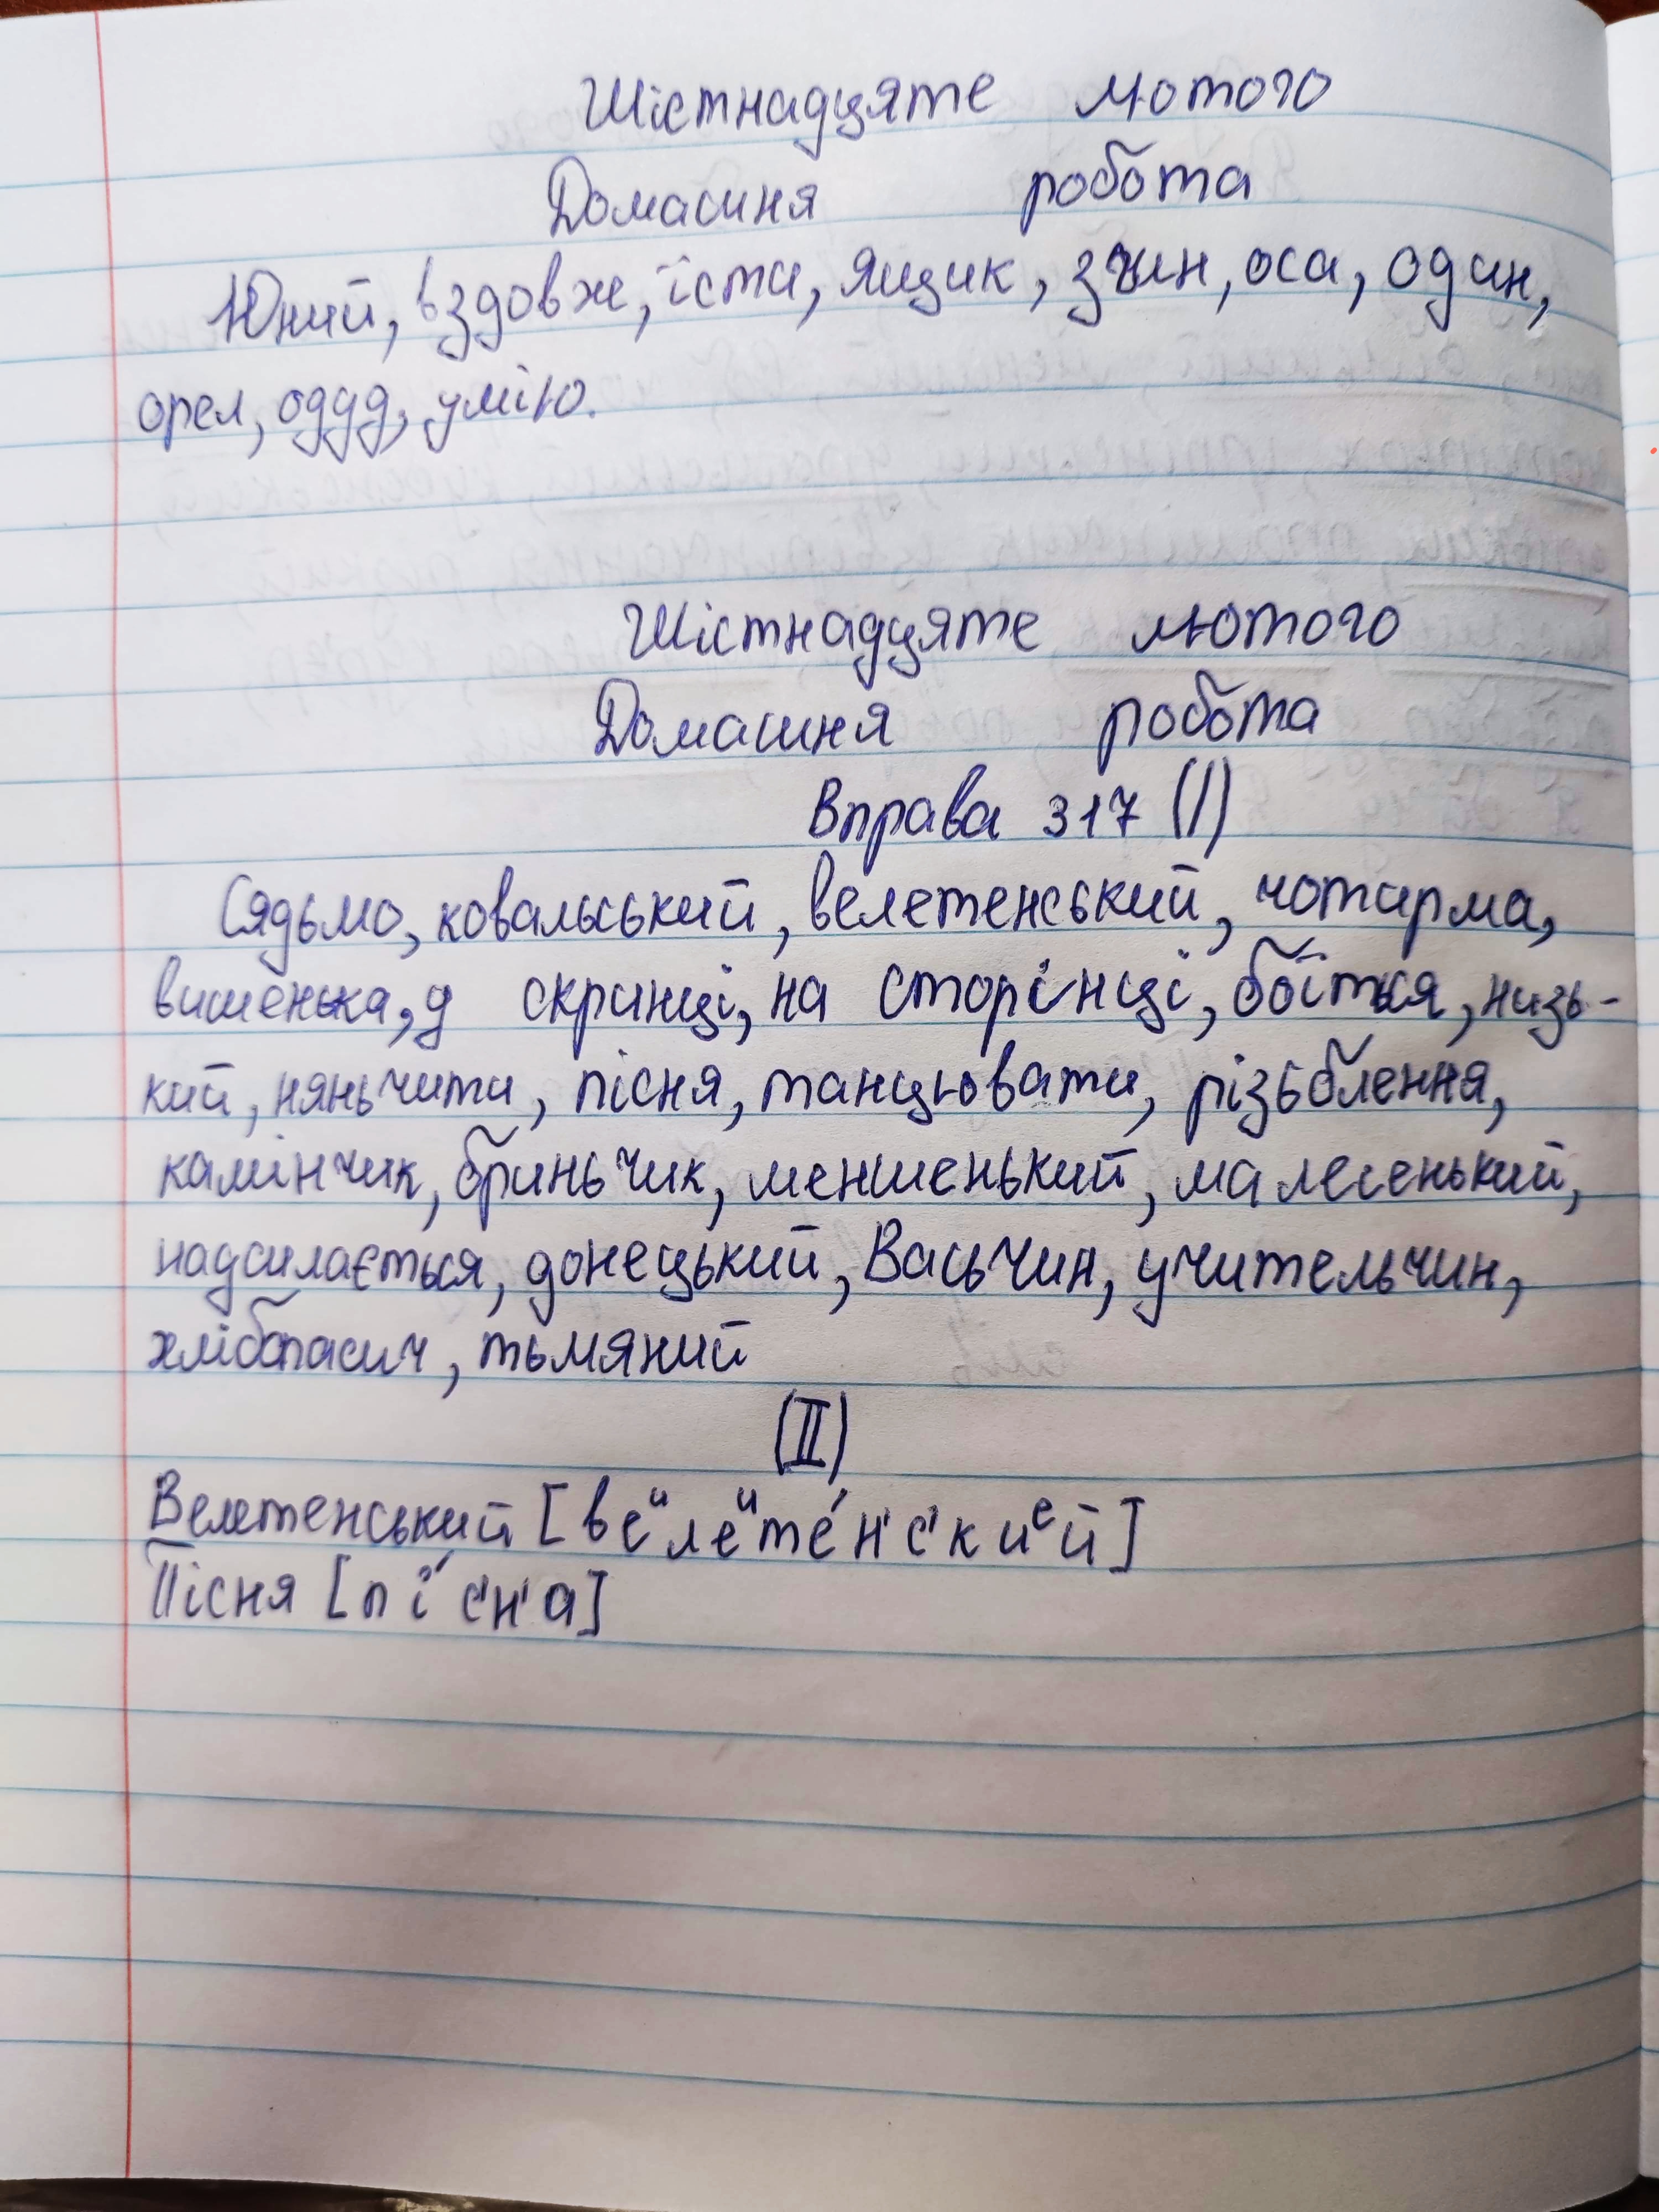 Шістнадцяте лютого
Домашня робота
Юний, вздовж, їсти, ящик, зчин, оса, один,
орел, одуд, умію.
Шістнадцяте лютого
Домашня робота
Вправа 317 (І)
Сядьмо, ковальський, велетенський, чотирма,
вишенька, у скринці, на сторінці, боїться, низь-
кий, няньчити, пісня, танцювати, різьблення,
камінчик, бриньчик, меншенький, малесенький,
надсилається, донецький, Васьчин, учительчин,
тьмяний
(ІІ)
Велетенський [веᵘлеᵘте́н'с'киᵉй]
Пісня [пі́с'н'а]